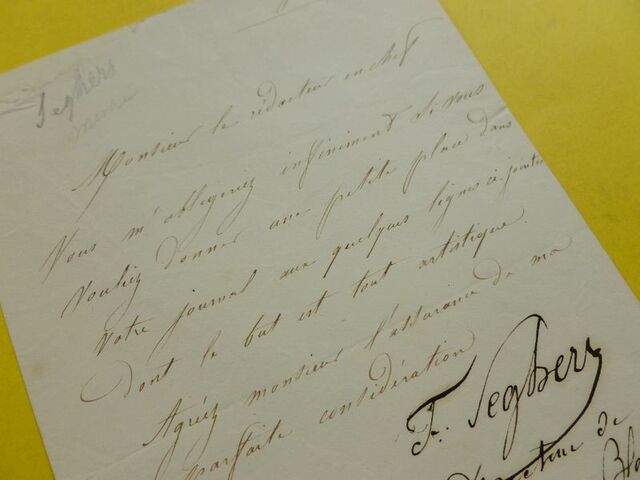 Seghers
Monsieur le rédacteur en chef
Vous m'obligeriez infiniment si vous
vouliez donner une petite place dans
votre journal aux quelques lignes ci-jointes
dont le but est tout artistique.
Agréez monsieur l'assurance de ma
parfaite considération
F. Seghers
de